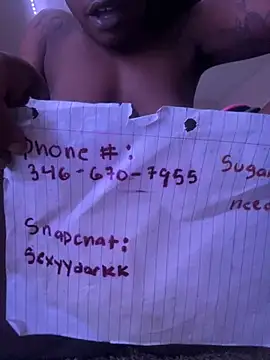 Phone #:
346-670-7955
Suga
need
Snapchat:
Sexyydarkk